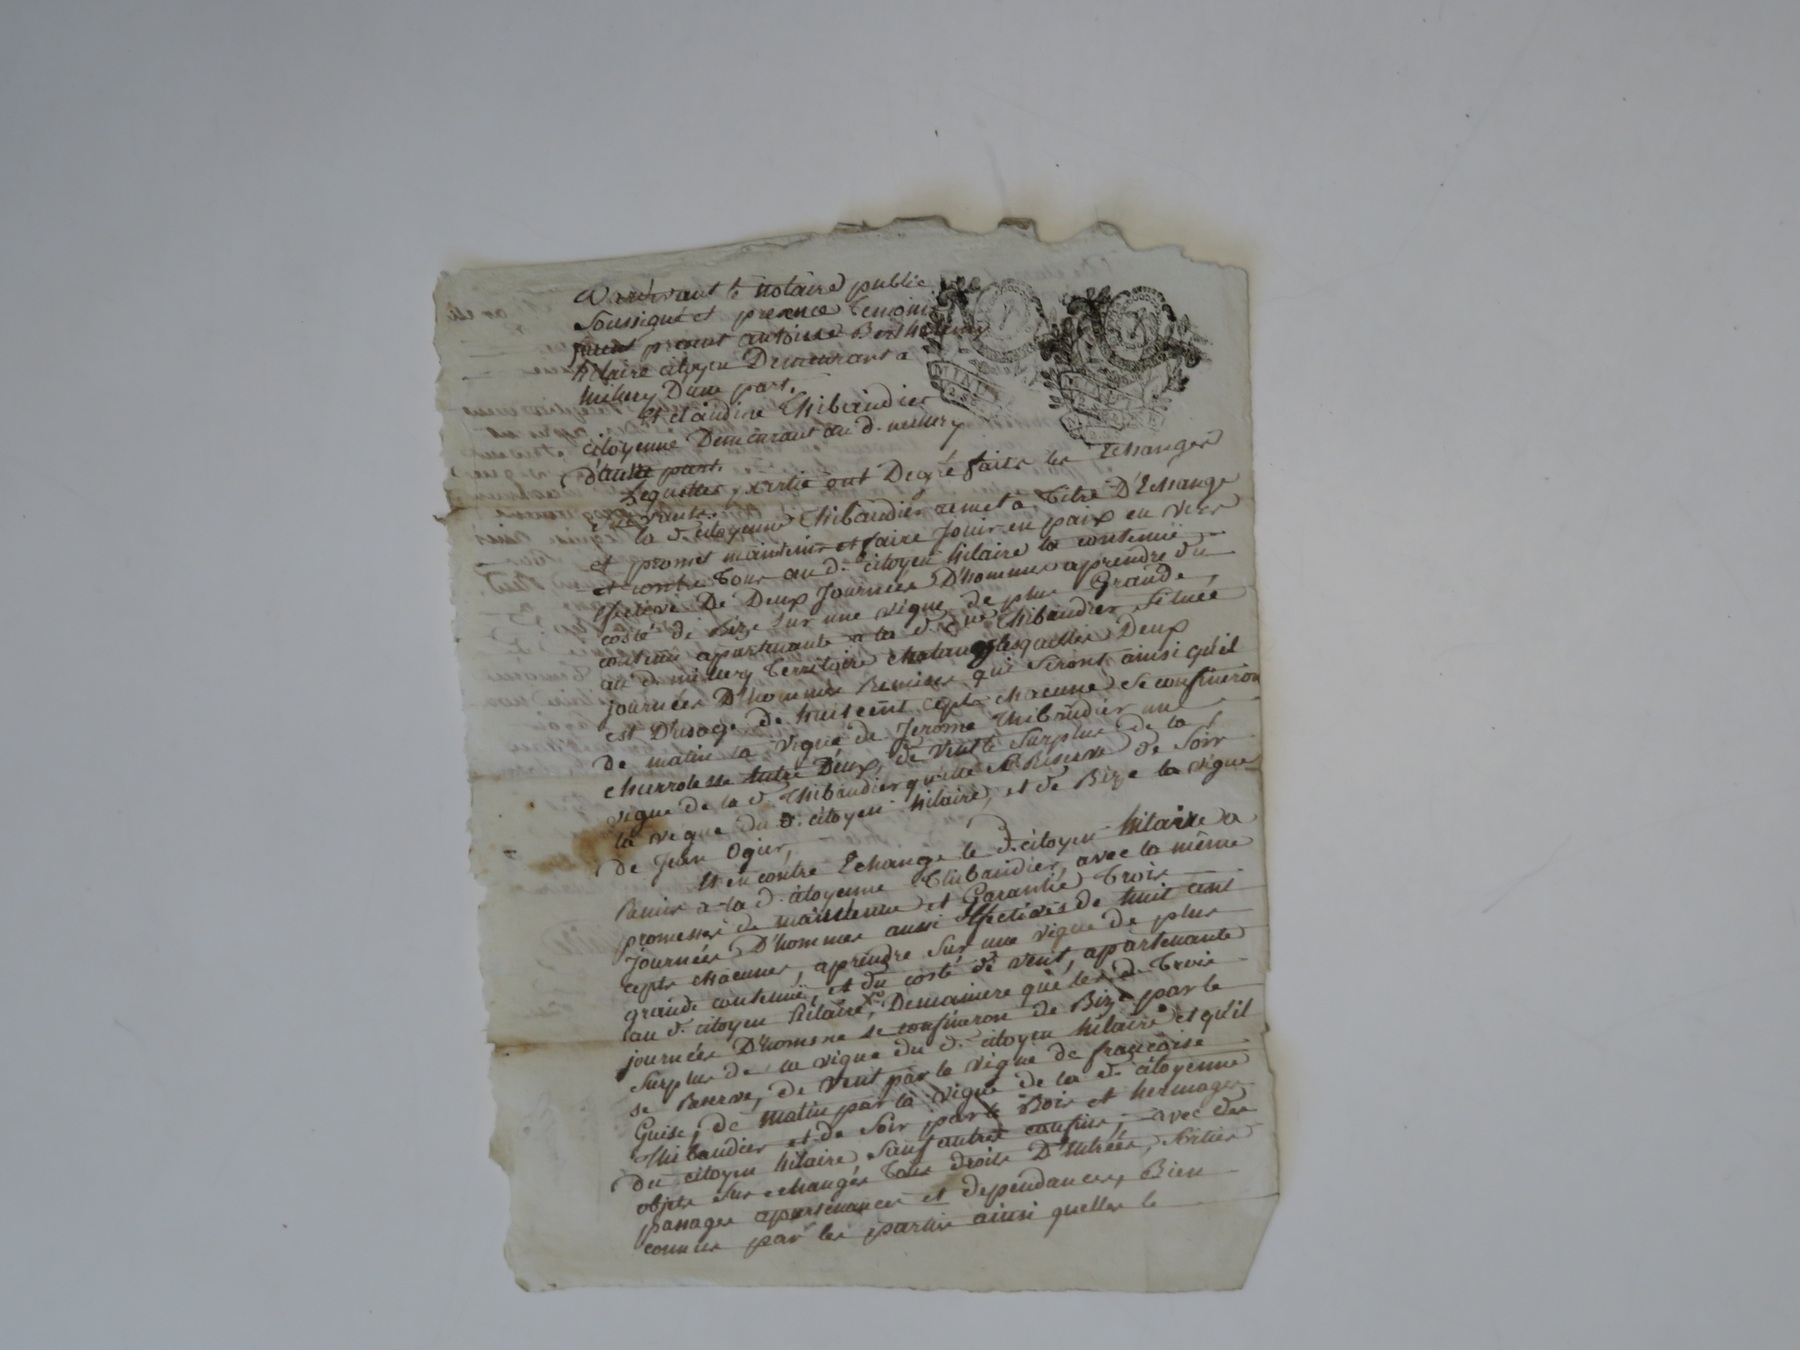 Pardevant le notaire public
Soussigné et presence temoins
furent present antoine Berthelemy
hilaire citoyen Demeurant a
millery D'une part.
Et claudine Thibaudier
citoyenne Demeurant au d. millery
d'autre part.
Lequelles partie ont De gré faits les Echanges
Suivants.
la d. citoyenne Thibaudier remet a Titre D'Echange
et promet maintenir et faire Jouir en paix en vers
et contre tous au d. citoyen hilaire la contenue
De Deux Journées D'homme aprendre du
costé de Bize sur une vigne de plus Grande
contenue apartenante a la d. Thibaudier Située
au d. millery Territoire lesquelles Deux
journées D'hommes Remises qui seront ainsi qu'il
est D'usage de huit cent ceps chacune se confineron
De matin la vigne de Jerome Thibaudier une
entre Deux, de vent le surplus de la
vigne de la d. Thibaudier qu'elle se Reserve de soir
la vigne du d. citoyen hilaire, et de Bize la vigne
de Jean Ogier,
Et en contre Echange le d. citoyen hilaire a
Remis a la d. citoyenne Thibaudier, avec la même
promesse de maintenue et Garantie Trois
journées D'hommes aussi effectives de huit cent
ceps chacunes, aprendre sur une vigne de plus
grande contenue, et du costé de vent, apartenante
au d. citoyen hilaire, Demaniere que les d. Trois
journées D'homme se confineron de Bize par le
surplus de la vigne du d. citoyen hilaire et qu'il
se Reserve, de vent par la vigne de françoise
Guise, de matin par la vigne de la d. citoyenne
Thibaudier et de soir par le Bois et hermages
Du citoyen hilaire sauf autres confins, avec des
objets sus echangés tous droits D'entrées, sorties
passages apartenances et dependances, Bien
connus par les parties ainsi quelles le